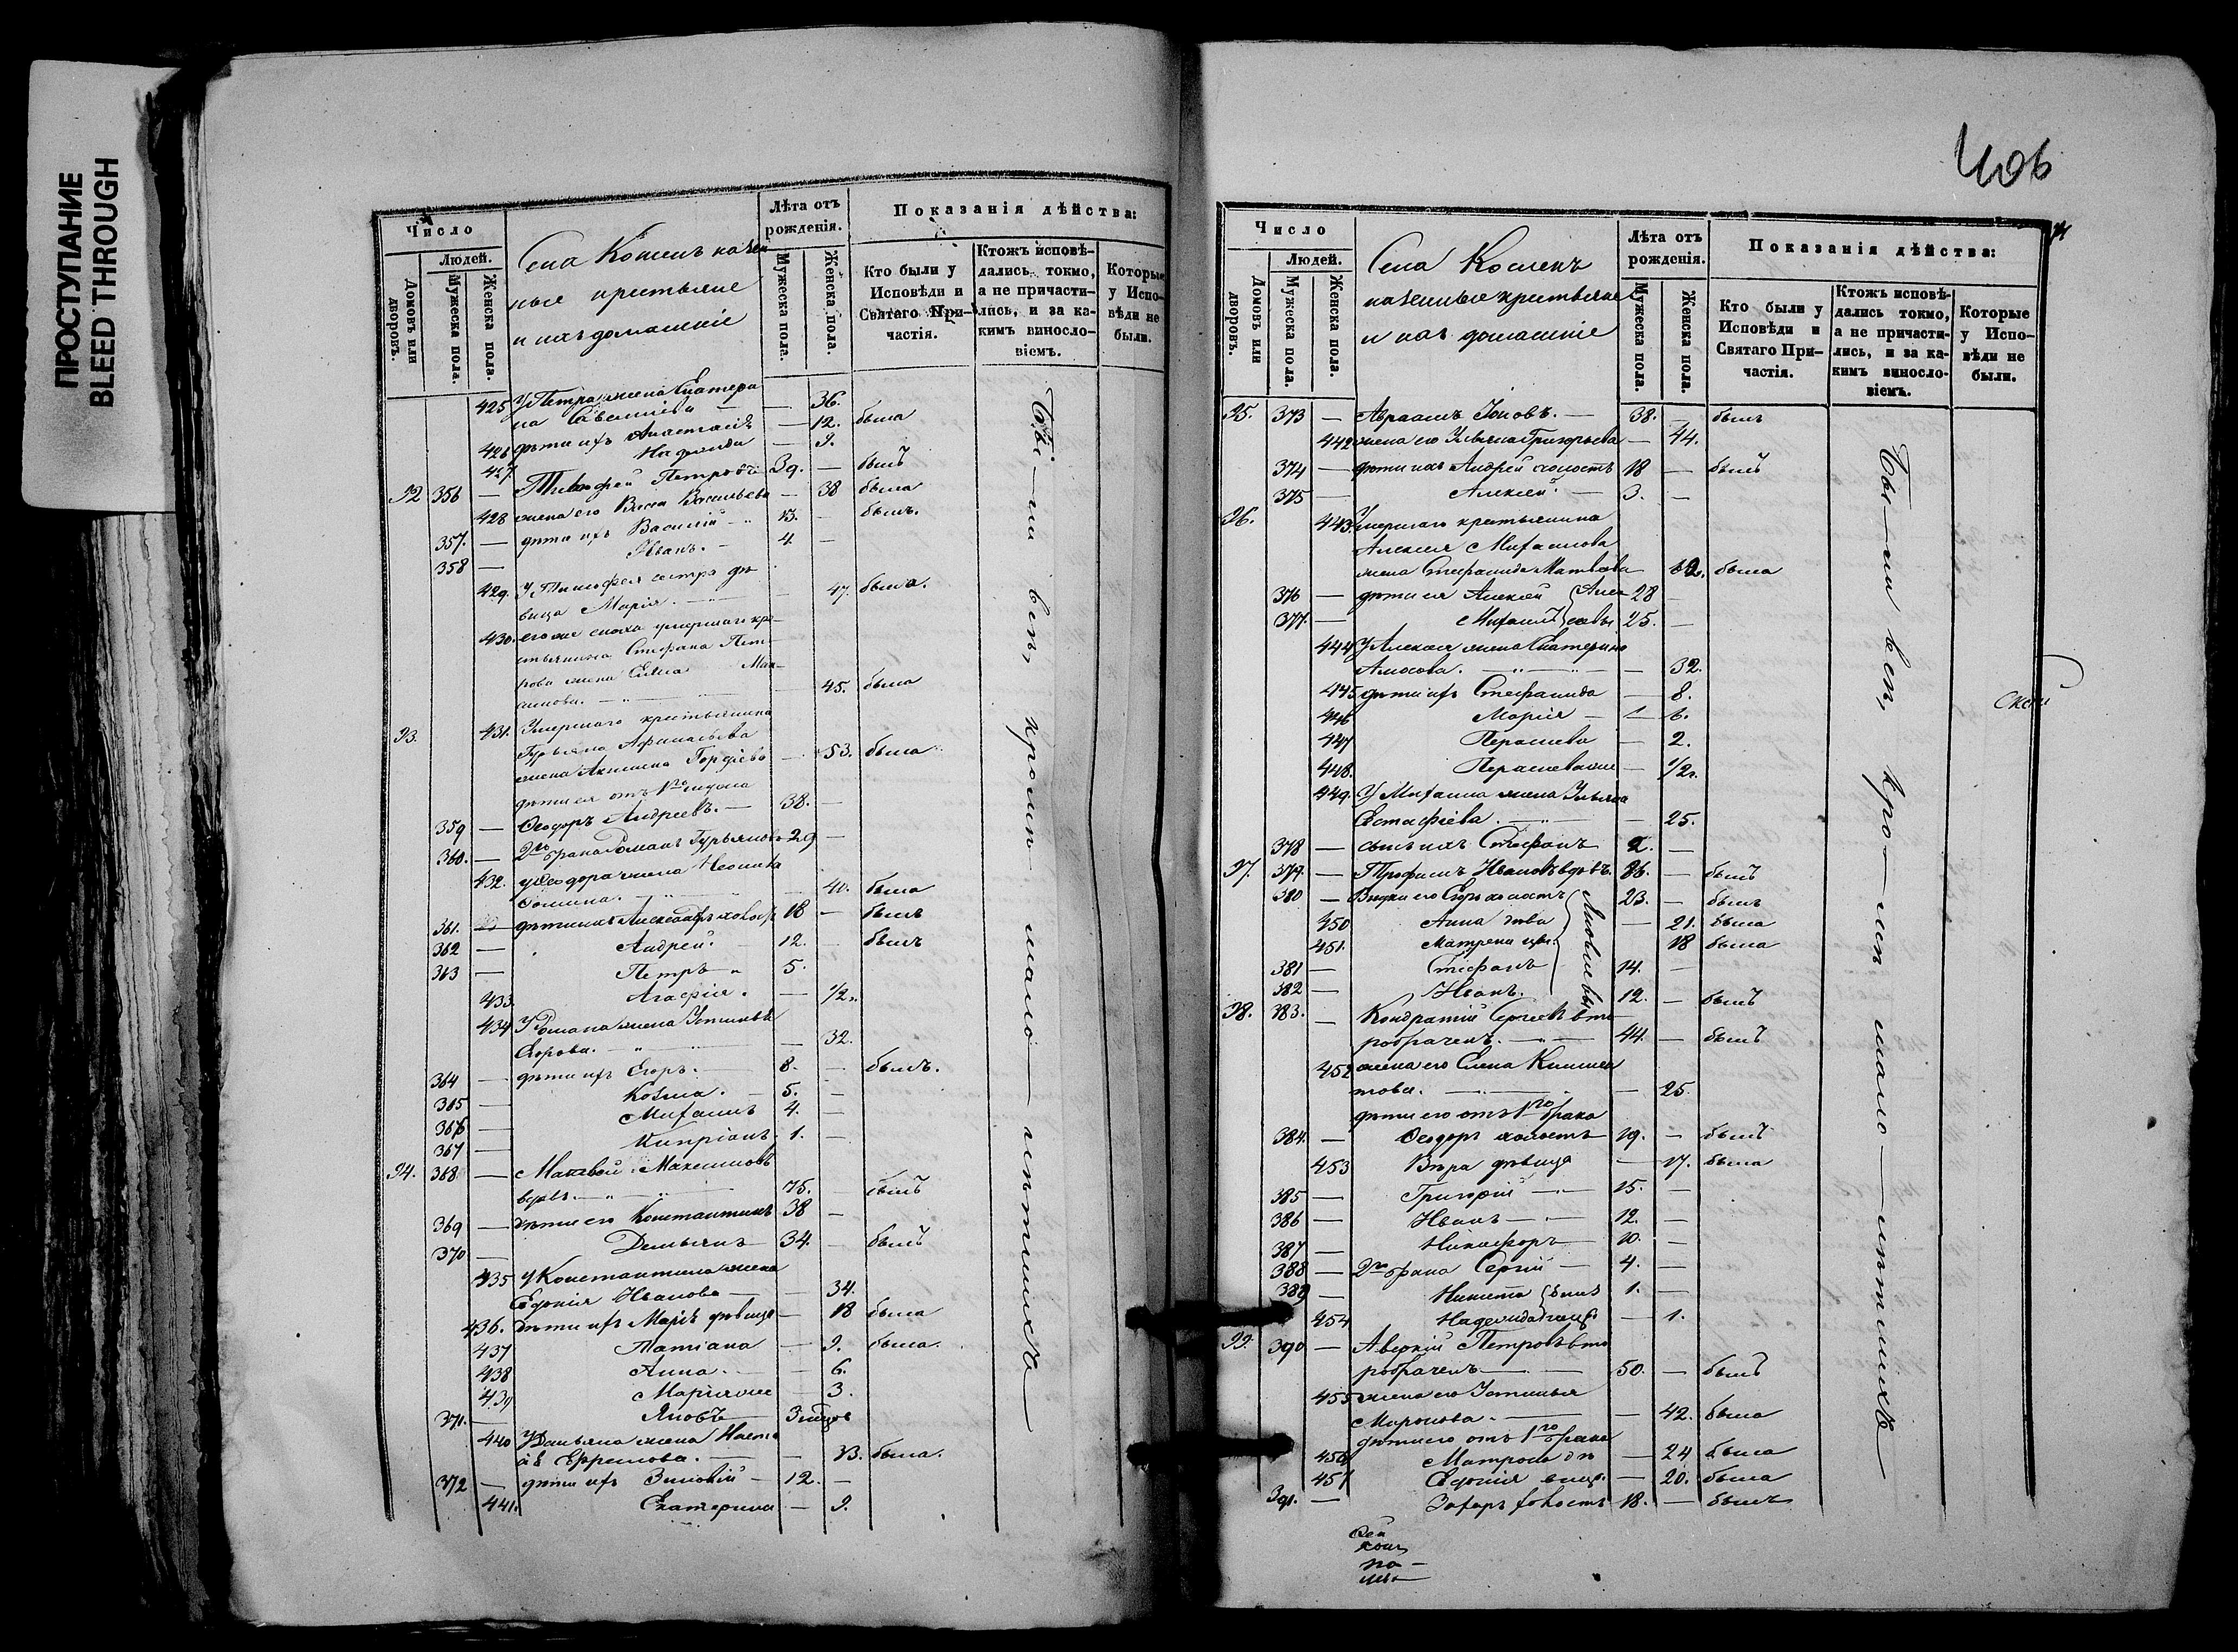 ПРОСТУПАНИЕ
BLEED THROUGH
Число
Людей.
Домовъ или дворовъ.
Мужеска пола.
Женска пола.
Села Кошекъ казен
ные крестьяне
и ихъ домашніе
Лѣта отъ рожденія.
Мужеска пола.
Женска пола.
Показанія дѣйства:
Кто были у Исповѣди и Святаго Причастія.
Ктожъ исповѣдались токмо, а не причастились, и за какимъ винословіемъ.
Которые у Исповѣди не были.
425 У Петра жена Екатери
на — — 36.
426 дѣти ихъ Анастасія — 12. была
427. Надежда — 9.
92 356 — Тимофей Петровъ 39. — былъ
428 жена его Васса Васильева — 38 была
357. — дѣти ихъ Василій 13. — былъ.
358 — Иванъ. — 4. —
429. У Тимофея сестра дѣ
вица Марія. — 47. была.
430. его же сноха умершаго кре-
стьянина Стефана Пет-
рова жена Елена Мак-
симова. — 45. была
93. 431. Умершаго крестьянина
Гурьяна Афанасьева
жена Акилина Гордѣева — 53. была
дѣти ея отъ 1го мужа
359 — Ѳеодоръ Андреевъ. — 38. —
360. — 2го брака Романъ Гурьяновъ 29 —
432. у Ѳеодора жена Неонила
Ѳомина. — 40. была
361. — дѣти ихъ Александръ холост 18 — былъ
362 — Андрей. 12. — былъ
363 — Петръ 5.
433. Агафія. — 1/2.
434 У Романа жена Устинья
Егорова. — 32.
364 — дѣти ихъ Егоръ. — 8. — былъ.
365 — Козма. — 5. —
366 — Михаилъ 4. —
367 — Кипріанъ 1. —
94. 368. — Матвей Максимовъ
вдовъ. — 75. былъ
369 — дѣти его Константинъ 38 —
370 — Демьянъ 34. — былъ
435 У Константина жена
Евдокія Иванова — 34.
436. дѣти ихъ Марія дѣвица — 18 была
437 Татіана — 9. была.
438 Анна. — 6.
439 Марія же — 3.
371. — Яковъ 3 мѣсяц
440 У Демьяна жена
Ефремова. — 33. была.
372 — дѣти ихъ Зиновій — 12. —
441. Екатерина — 9.
Бы — ли всѣ, кромѣ — мало — лѣтнихъ
406
Число
Людей.
Домовъ или дворовъ.
Мужеска пола.
Женска пола.
Села Кошекъ
казенные крестьяне
и ихъ домашніе
Лѣта отъ рожденія.
Мужеска пола.
Женска пола.
Показанія дѣйства:
Кто были у Исповѣди и Святаго Причастія.
Ктожъ исповѣдались токмо, а не причастились, и за какимъ винословіемъ.
Которые у Исповѣди не были.
95. 373 — Авраамъ Іоновъ. — 38. — былъ
442 жена его Ульяна Григорьева — 44.
374 — дѣти ихъ Андрей холостъ 18 — былъ
375 — Алексѣй. — 3. —
96. 443. Умершаго крестьянина
Алексея Михайлова
жена Стефанида Матвѣева была
376 — дѣти ея Алексѣй 28 —
377. — Михаилъ 25. —
444 У Алексея жена Екатерина
Амосова. — 32.
445 дѣти ихъ Стефанида — 8.
446 Марія — 6.
447 Парасксва — 2.
448. Параскева же — 1/2.
449. У Михаила жена Ульяна
Евстафіева. — 25.
378 — сынъ ихъ Стефанъ 2. —
97. 379. — Трофимъ Ивановъ вдовъ. 86. — былъ
380 — Внуки его Егоръ холостъ 23. — былъ
450 Анна дѣва — 21. была
451. Матрена 18 была
381 — Стефанъ 14. —
382 — Иванъ. 12. — былъ
Яковлевы
98. 383. — Кондратій Сергеевъ вто
робраченъ. — 44. — былъ
452 жена его Елена Климен
това. — 25.
дѣти его отъ 1го брака
384. — Ѳеодоръ холостъ 19. — былъ
453 Вѣра дѣвица — 17. была
385 — Григорій — 15. —
386 — Иванъ — 12. —
387 — Никифоръ 10. —
388 — 2го брака Сергій — 4. —
389 — Никита 1. —
454 Надежда — 1.
близнецы
99. 390 — Аверкій Петровъ вто
робраченъ — 50. — былъ
455 жена его Устинья
Миронова. — 42. была
дѣти его отъ 1го брака
456 Матрона дѣ — 24 была
457 Евдокія — 20. была
391. — Захаръ холостъ 18. — былъ
Бы — ли всѣ, кро — мѣ мало — лѣтнихъ